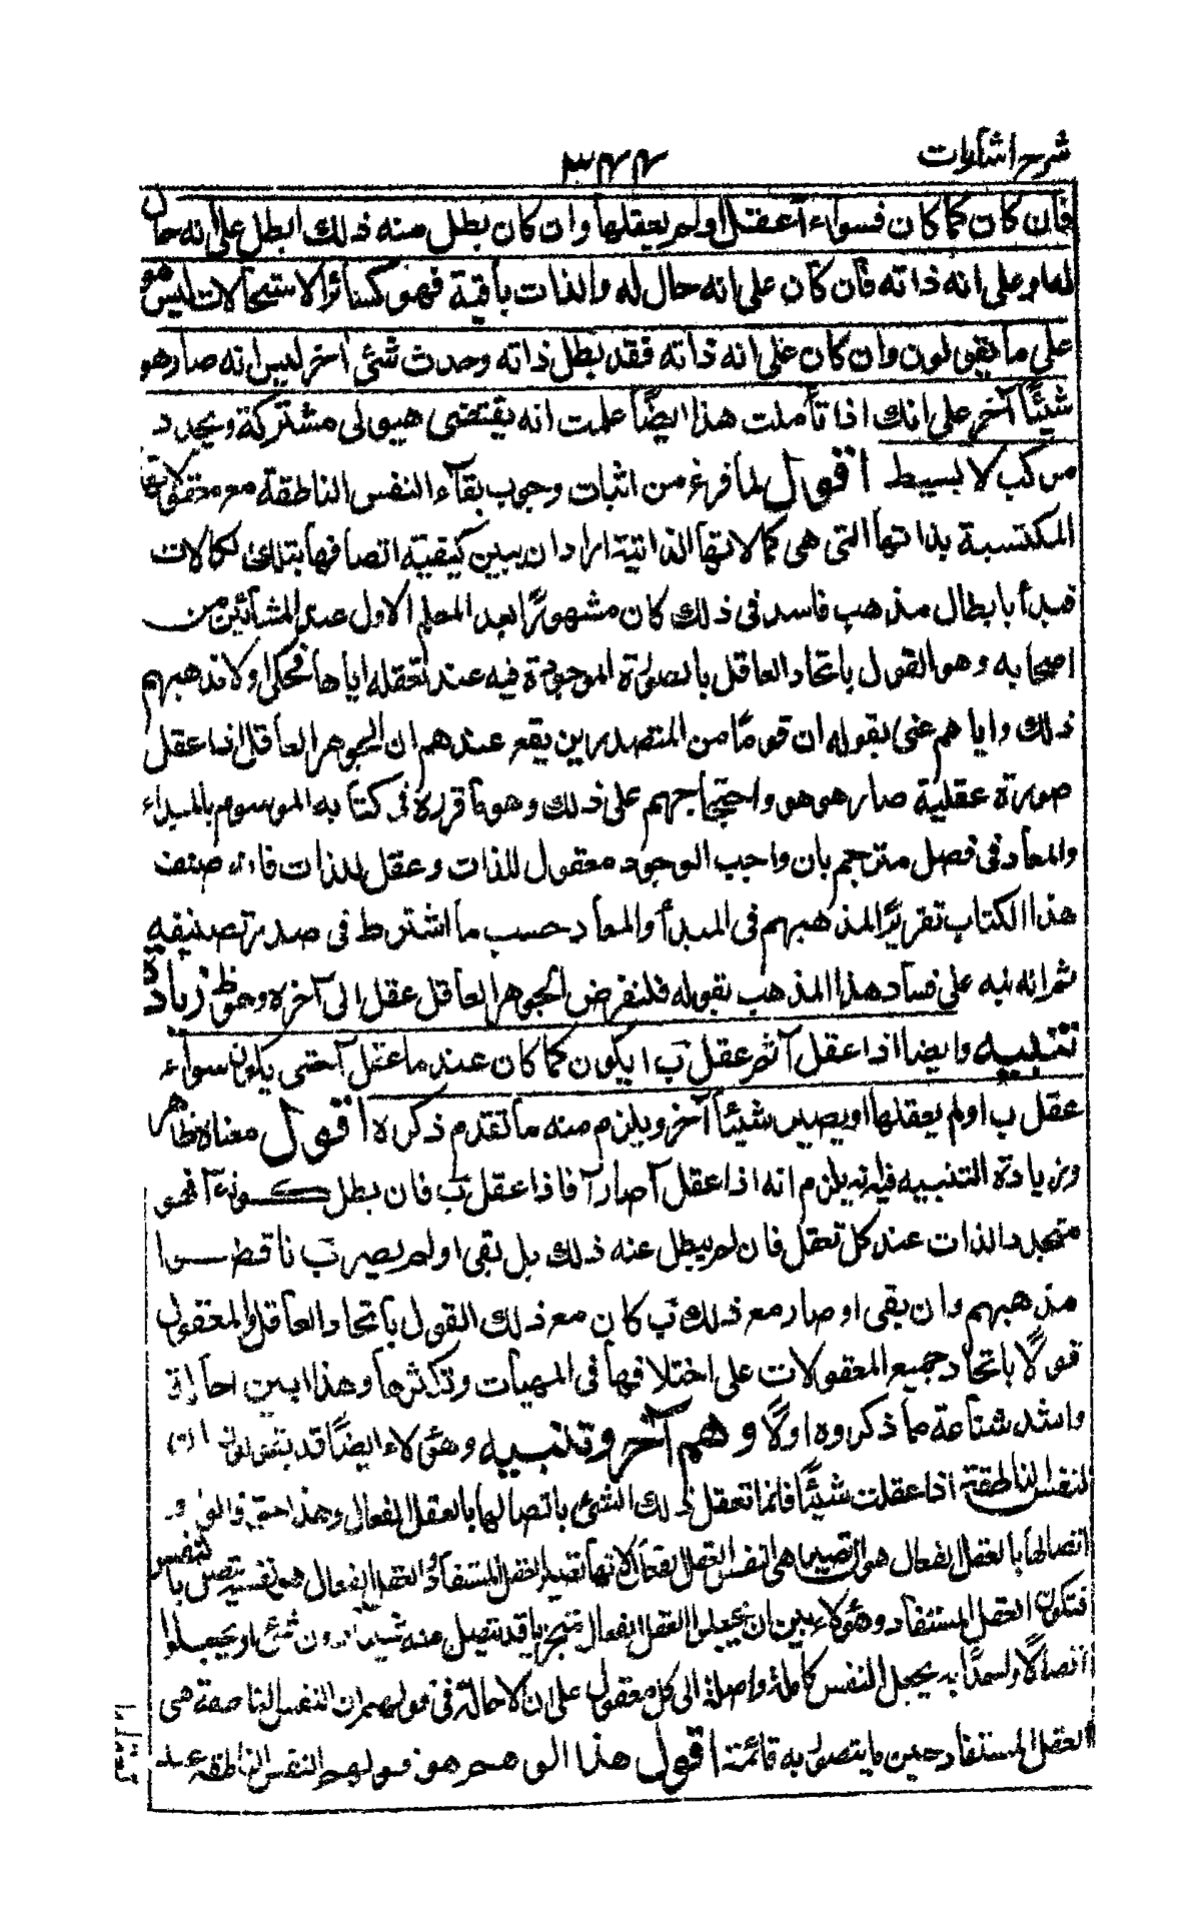 شرح اشارات
۳۴۴
فان كان كما كان فسواء آعقل اولم يعقلها وان كان بطل منه ذلك ابطل على انه حال
له او على انه ذاته فان كان على انه حال له والذات باقية فهو كسائر الاستحالات ليس هو
على ما يقولون وان كان على انه ذاته فقد بطل ذاته وحدث شئ آخر ليس انه صار هو
شيئًا آخر على انك اذا تأملت هذا ايضًا علمت انه يقتضى هيولى مشتركة وتجدد
مركب لا بسيط اقول لما فرغ من اثبات وجوب بقاء النفس الناطقة مع معقولاتها
المكتسبة بذاتها التى هى كمالاتها الذاتية اراد ان يبين كيفية اتصافها بتلك الكمالات
فبدأ بابطال مذهب فاسد فى ذلك كان مشهورًا بعد المعلم الاول عند المشائين من
اصحابه وهو القول باتحاد العاقل بالصورة الموجودة فيه عند تعقله اياها فحكى اولا مذهبهم
ذلك واياهم عنى بقوله ان قومًا من المتصدرين يقع عندهم ان الجوهر العاقل اذا عقل
صورة عقلية صار هو هو واحتجاجهم على ذلك وهو ما قرره فى كتابه الموسوم بالمبداء
والمعاد فى فصل مترجم بان واجب الوجود معقول للذات وعقل للذات فانه صنف
هذا الكتاب تقريرًا لمذهبهم فى المبدأ والمعاد حسب ما اشترط فى صدر تصنيفه
ثم انه نبه على فساد هذا المذهب بقوله فلنفرض الجوهر العاقل عقل الى آخره وهو ظ زيادة
تنبيه وايضا اذا عقل آ ثم عقل ب ايكون كما كان عندما عقل آ حتى يكون سواء
عقل ب او لم يعقلها او يصير شيئاً آخر ويلزم منه ما تقدم ذكره اقول معناه ظاهر
وزيادة التنبيه فيه انه يلزم انه اذا عقل آ صار آ فاذا عقل ب فان بطل كونه آ فهو
متجدد الذات عند كل تعقل فان لم يبطل عنه ذلك بل بقى ا ولم يصر ب ناقضوا
مذهبهم وان بقى ا وصار مع ذلك ب كان مع ذلك القول باتحاد العاقل والمعقول
قولًا باتحاد جميع المعقولات على اختلافها فى المهيات وتكاثرها وهذا ابين احالة
واشد شناعة مما ذكروه اولًا وهم آخر وتنبيه وهؤلاء ايضًا قد يقولون ان
النفس الناطقة اذا عقلت شيئًا فانما تعقل ذلك الشئ باتصالها بالعقل الفعال وهذا حق قالوا و
اتصالها بالعقل الفعال هو ان تصير هى نفس العقل الفعال لانها تصير العقل المستفاد والعقل الفعال هو نفسه يتصل بالنفس
فتكون العقل المستفاد وهؤلاء بين ان يجعلوا العقل الفعال متجزيا قد يتصل منه شئ دون شئ او يجعلوا
اتصالًا واحدًا به يجعل النفس كاملة واصلة الى كل معقول على ان الاحالة فى قولهم ان النفس الناطقة هى
العقل المستفاد حين ما يتصور به قائمة اقول هذا الوهم هو قولهم النفس الناطقة عند